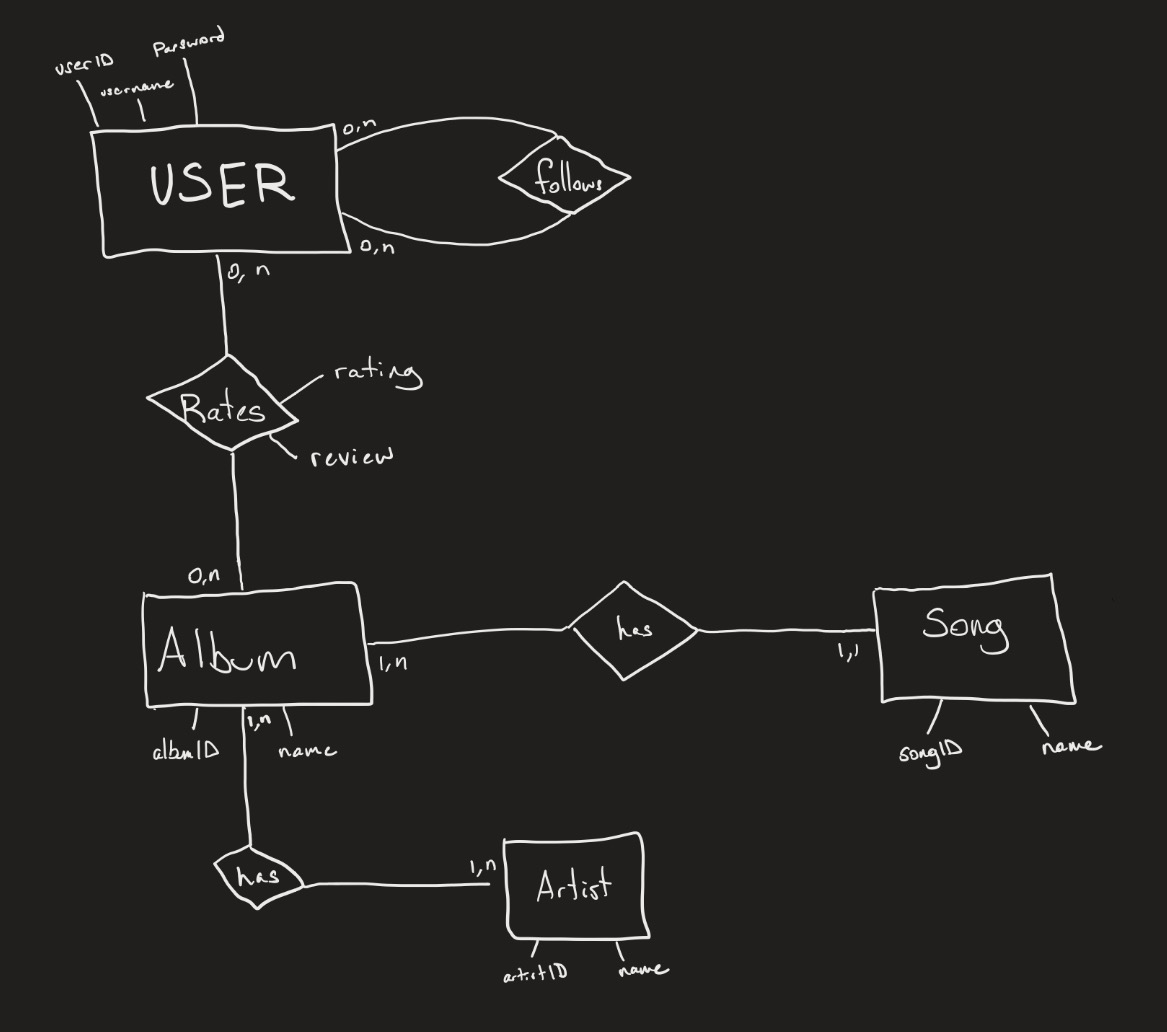 userID
Password
username
USER
0,n
follows
0,n
0, n
rating
Rates
review
0,n
Album
1,n
has
1,1
Song
albmID
1,n
name
songID
name
has
1,n
Artist
artistID
name